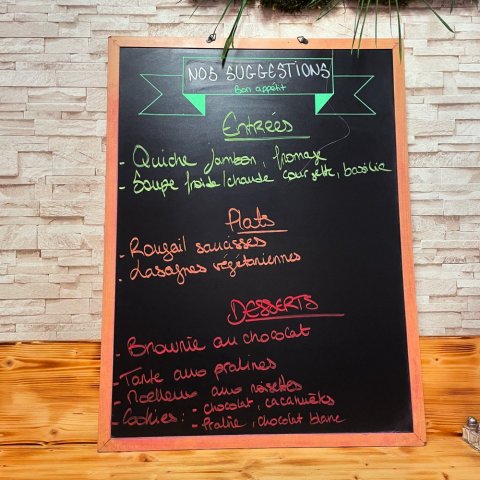 NOS SUGGESTIONS
Bon appétit
Entrées
- Quiche jambon, fromage
- Soupe froide/chaude courgette, basilic
Plats
- Rougail saucisses
- Lasagnes végétariennes
DESSERTS
- Brownie au chocolat
- Tarte aux pralines
- Moelleux aux noisettes
- Cookies : - chocolat, cacahuètes
- Praline, chocolat blanc